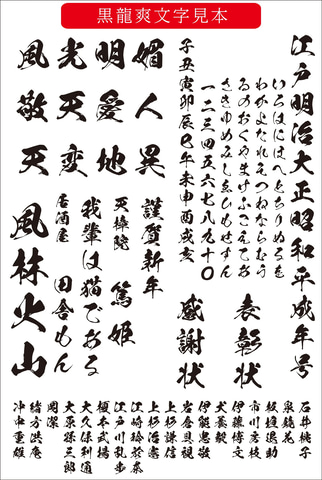 黒龍爽文字見本
江戸明治大正昭和平成年号
いろはにほへとちりぬるを
わかよたれそつねならむう
ゐのおくやまけふこえてあ
さきゆめみしゑひもせすん
一二三四五六七八九十〇
子丑寅卯辰巳午未申酉戌亥
表彰状
感謝状
媚人異
明愛地
光天変
風敬天
謹賀新年
天樟院 篤姫
我輩は猫である
居酒屋 田舎もん
風林火山
石井桃子
泉鏡花
板垣退助
市川房枝
伊藤博文
犬養毅
伊能忠敬
岩倉具視
上杉謙信
上杉治憲
江崎玲於奈
江戸川乱歩
榎本武揚
大久保利通
大原孫三郎
岡潔
緒方洪庵
沖中重雄